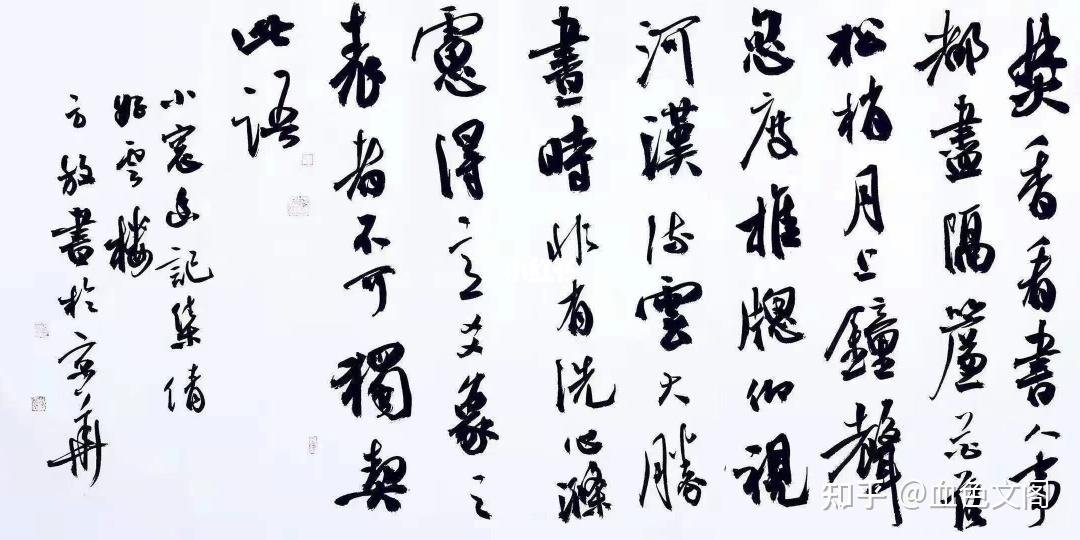 焚香看書人事
都盡隔簾花落
松梢月上鐘聲
忽度推牕仰視
河漢流雲大勝
晝時非有洗心滌
慮得意爻象之
表者不可獨契
此語
小窗幽記集倩
雲樓
方放書於京華
知乎 @血色文阁